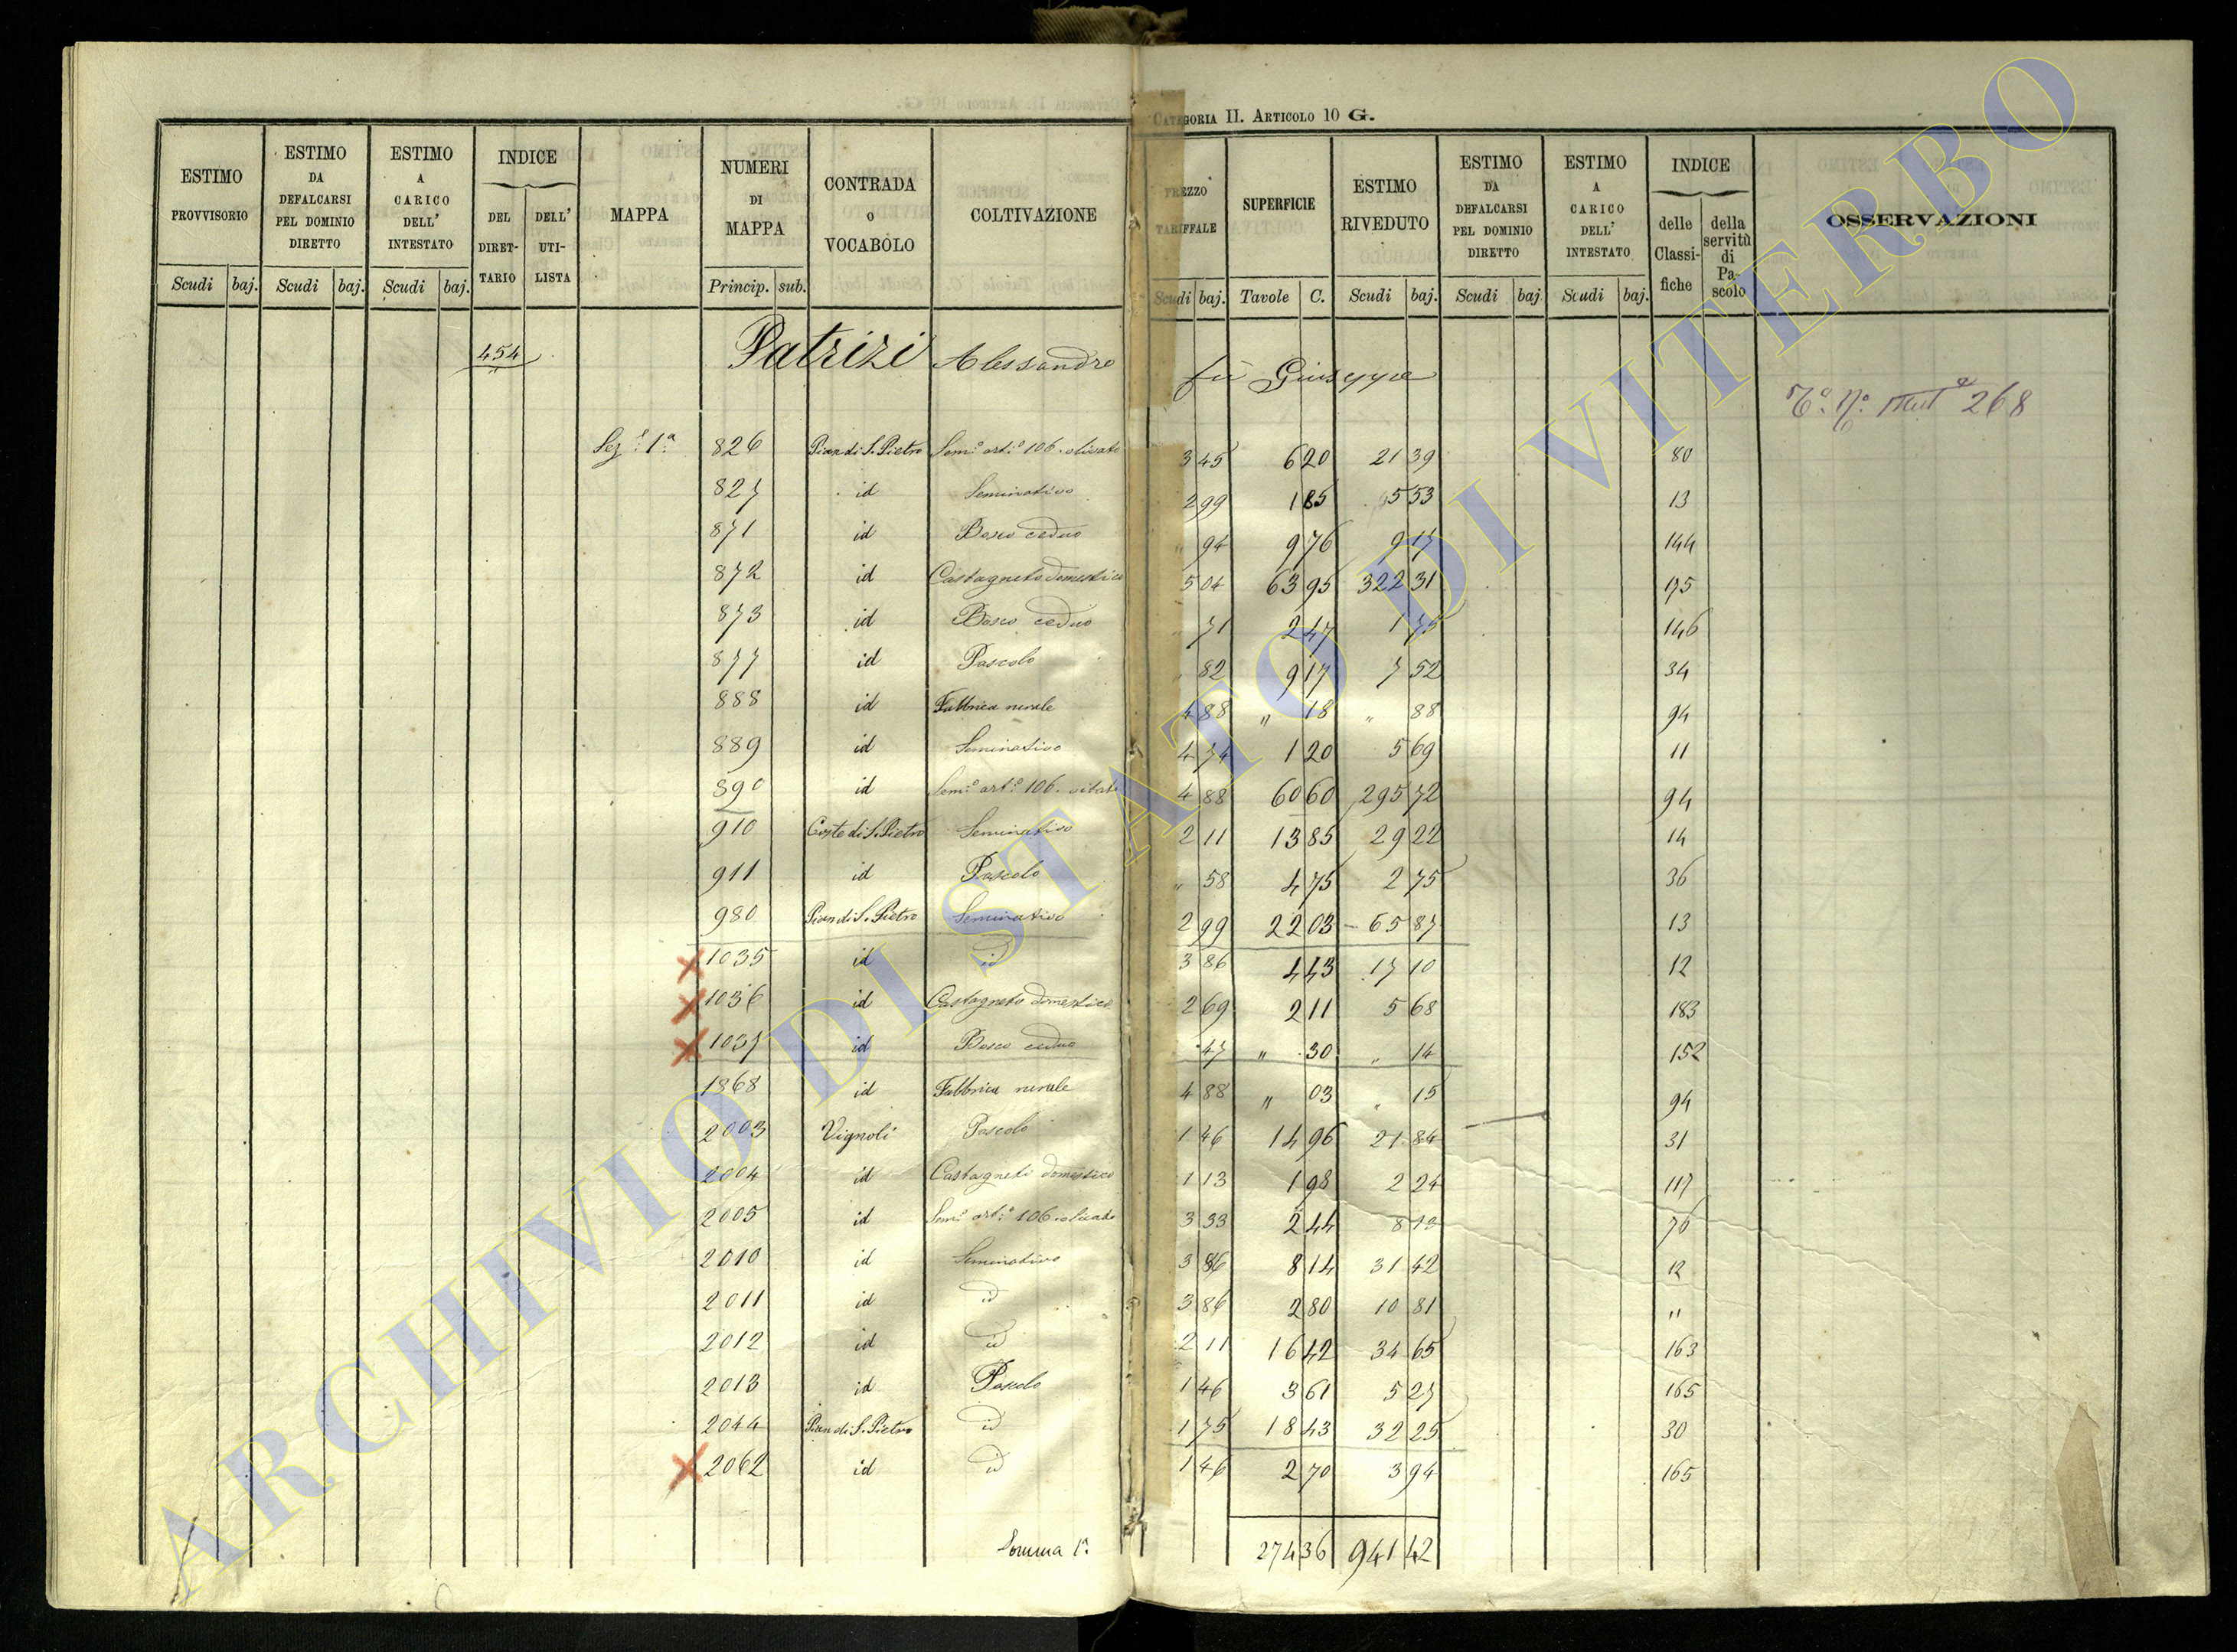 CATEGORIA II. ARTICOLO 10 G.
ESTIMO PROVVISORIO Scudi baj.
ESTIMO DA DEFALCARSI PEL DOMINIO DIRETTO Scudi baj.
ESTIMO A CARICO DELL' INTESTATO Scudi baj.
INDICE DEL DIRETTARIO DELL' UTILISTA
MAPPA
NUMERI DI MAPPA Princip. sub.
CONTRADA O VOCABOLO
COLTIVAZIONE
PREZZO TARIFFALE Scudi baj.
SUPERFICIE Tavole C.
ESTIMO RIVEDUTO Scudi baj.
ESTIMO DA DEFALCARSI PEL DOMINIO DIRETTO Scudi baj
ESTIMO A CARICO DELL' INTESTATO Scudi baj.
INDICE delle Classifiche della servitù di Pascolo
OSSERVAZIONI
454 Patrizi Alessandro fu Giuseppe
268
Sez.e 1a 826 Pian di S. Pietro Sem.o art.o 106 olivato 3 45 6 20 21 39 80
827 id Seminativo 2 99 1 85 5 53 13
871 id Bosco ceduo " 94 9 76 9 17 144
872 id Castagneto domestico 5 04 63 95 322 31 175
873 id Bosco ceduo 71 2 47 1 75 146
877 id Pascolo 82 9 17 7 52 34
888 id Fabbrica rurale 4 88 " 18 " 88 94
889 id Seminativo 4 74 1 20 5 69 11
890 id Sem.o art.o 106 vitato 4 88 60 60 295 72 94
910 Coste di S. Pietro Seminativo 2 11 13 85 29 22 14
911 id Pascolo " 58 4 75 2 75 36
980 Pian di S. Pietro Seminativo 2 99 22 03 65 87 13
1035 id id 3 86 4 43 17 10 12
1036 id Castagneto domestico 2 69 2 11 5 68 183
1037 id Bosco ceduo 47 " 30 " 14 152
1868 id Fabbrica rurale 4 88 " 03 " 15 94
2003 Vignoli Pascolo 1 46 14 96 21 84 31
2004 id Castagneto domestico 1 13 1 98 2 24 117
2005 id Sem.o art.o 106 olivato 3 33 2 44 8 13 76
2010 id Seminativo 3 86 8 14 31 42 12
2011 id id 3 86 2 80 10 81 "
2012 id id 2 11 16 42 34 65 163
2013 id Pascolo 1 46 3 61 5 27 165
2044 Pian di S. Pietro id 1 75 18 43 32 25 30
2062 id id 1 46 2 70 3 94 165
Somma 1a 274 36 941 42
ARCHIVIO DI STATO DI VITERBO